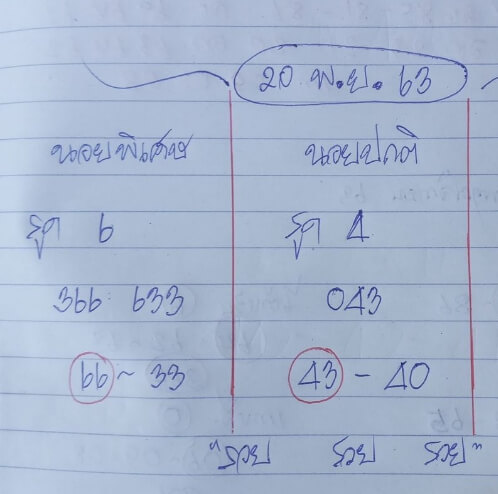 20 พ.ย. 63
ฮนอยพิเศษ ฮานอยปกติ
รูด 6 รูด 4
366 633 043
66 ~ 33 43 - 40